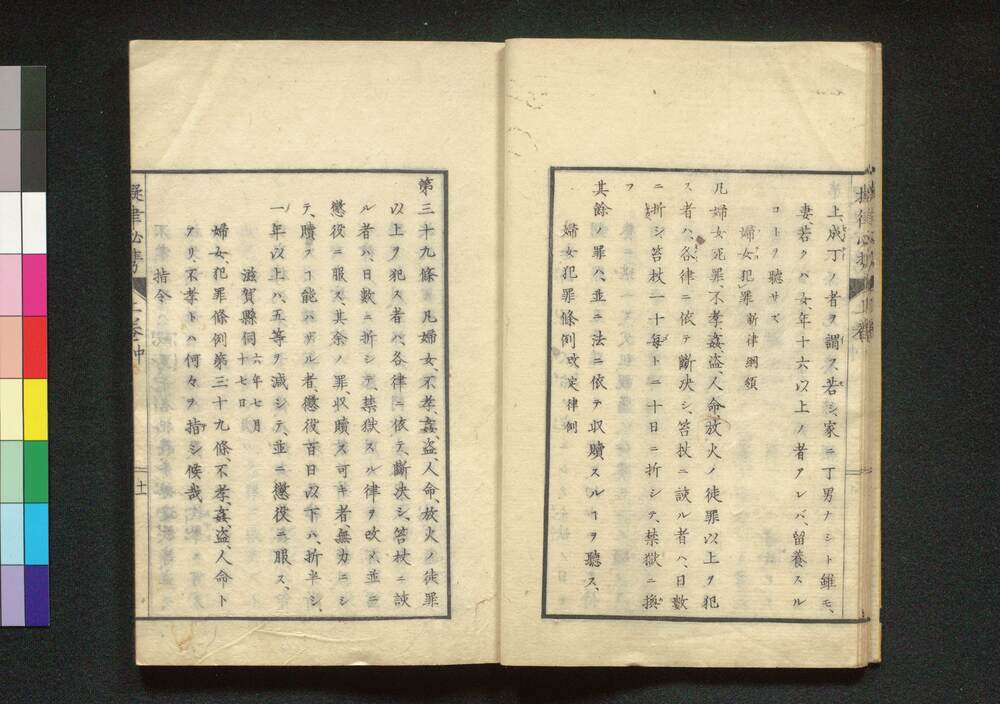 上、成丁ノ者ヲ謂ス若シ家ニ丁男ナシト雖モ、
妻若クハ女、年十六以上ノ者アレバ、留養スル
コトヲ聴サズ
婦女犯罪 新律綱領
凡婦女死罪、不孝、姦、盗、人命、放火ノ徒罪以上ヲ犯
ス者ハ、各律ニ依テ断决シ、笞杖ニ該ル者ハ、日数
ニ折シ笞杖一十毎トニ十日ニ折シテ、禁獄ニ換
フ
其餘ノ罪ハ、並ニ法ニ依テ収贖スルヿヲ聴ス、
婦女犯罪條例 改定律例
第三十九條 凡婦女、不孝、姦、盗、人命、放火ノ徒罪
以上ヲ犯ス者ハ、各律ニ依テ断决シ、笞杖ニ該
ル者ハ、日数ニ折シテ、禁獄スル律ヲ改メ、並ニ
懲役ニ服ス、其余ノ罪収贖ス可キ者、無力ニシ
テ、贖スヿ能ハザル者、懲役百日以下ハ、折半シ、
一年以上ハ、五等ヲ減シテ、並ニ懲役ニ服ス、
滋賀縣伺 六年七月十七日
婦女、犯罪條例第三十九條、不孝、姦、盗、人命ト
アリ、不孝トハ何々ヲ指シ候哉
指令
擬律必携
十一